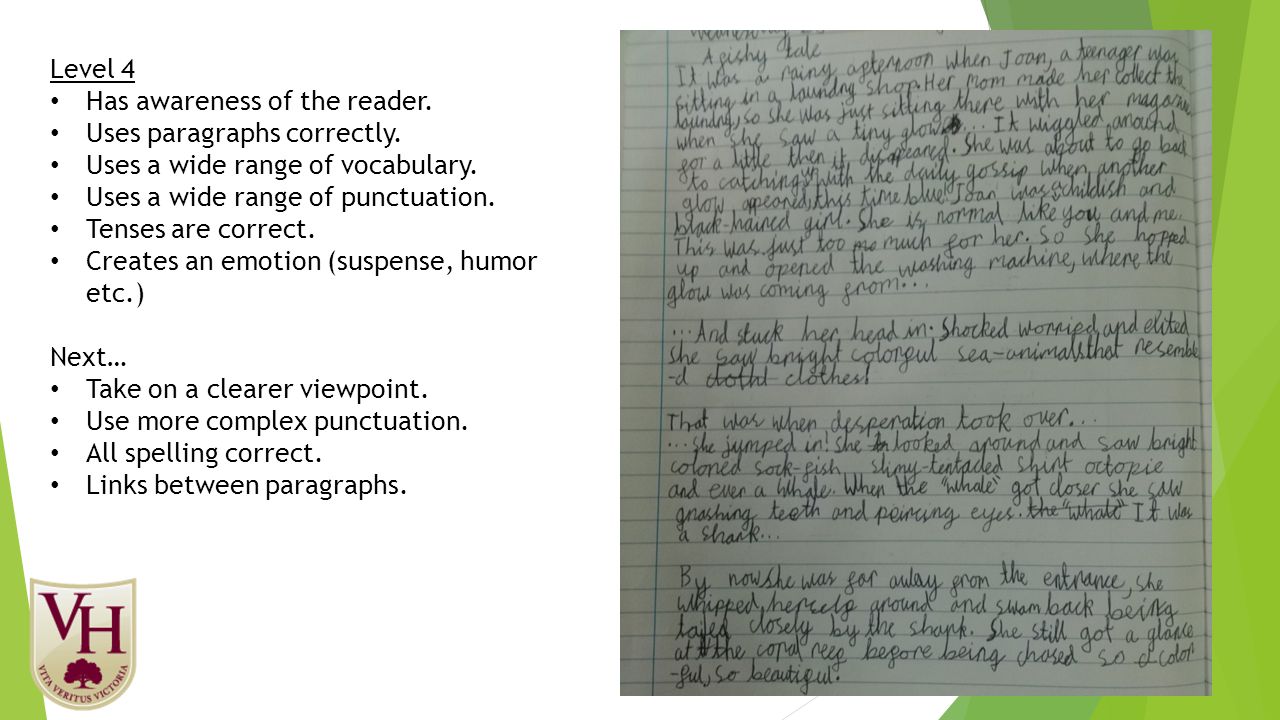 Level 4
• Has awareness of the reader.
• Uses paragraphs correctly.
• Uses a wide range of vocabulary.
• Uses a wide range of punctuation.
• Tenses are correct.
• Creates an emotion (suspense, humor
etc.)
Next…
• Take on a clearer viewpoint.
• Use more complex punctuation.
• All spelling correct.
• Links between paragraphs.
VH
VITA VERITUS VICTORIA
A fishy tale
It was a rainy afternoon when Joan, a teenager was
sitting in a laundry shop. Her mom made her collect the
laundry, so she was just sitting there with her magazine
when she saw a tiny glow.... It wiggled around
for a little then it disapeared. She was about to go back
to catching up with the daily gossip when another
glow appeared, this time blue! Joan was childish and
black-haired girl. She is normal like you and me.
This was just too much for her. So she hopped
up and opened the washing machine, where the
glow was coming from...
...And stuck her head in. Shocked worried and elited
she saw bright colorful sea-animals that resemble
-d clothes!
That was when desperation took over...
...she jumped in! She looked around and saw bright
colored sock-fish, slimy-tentacled shirt octopie
and even a whale. When the "whale" got closer she saw
gnashing teeth and peircing eyes. the "whale" It was
a shark...
By now she was far away from the entrance, she
whipped herself around and swam back being
tailed closely by the shark. She still got a glance
at the coral reef before being chased so color
-ful, so beautiful.